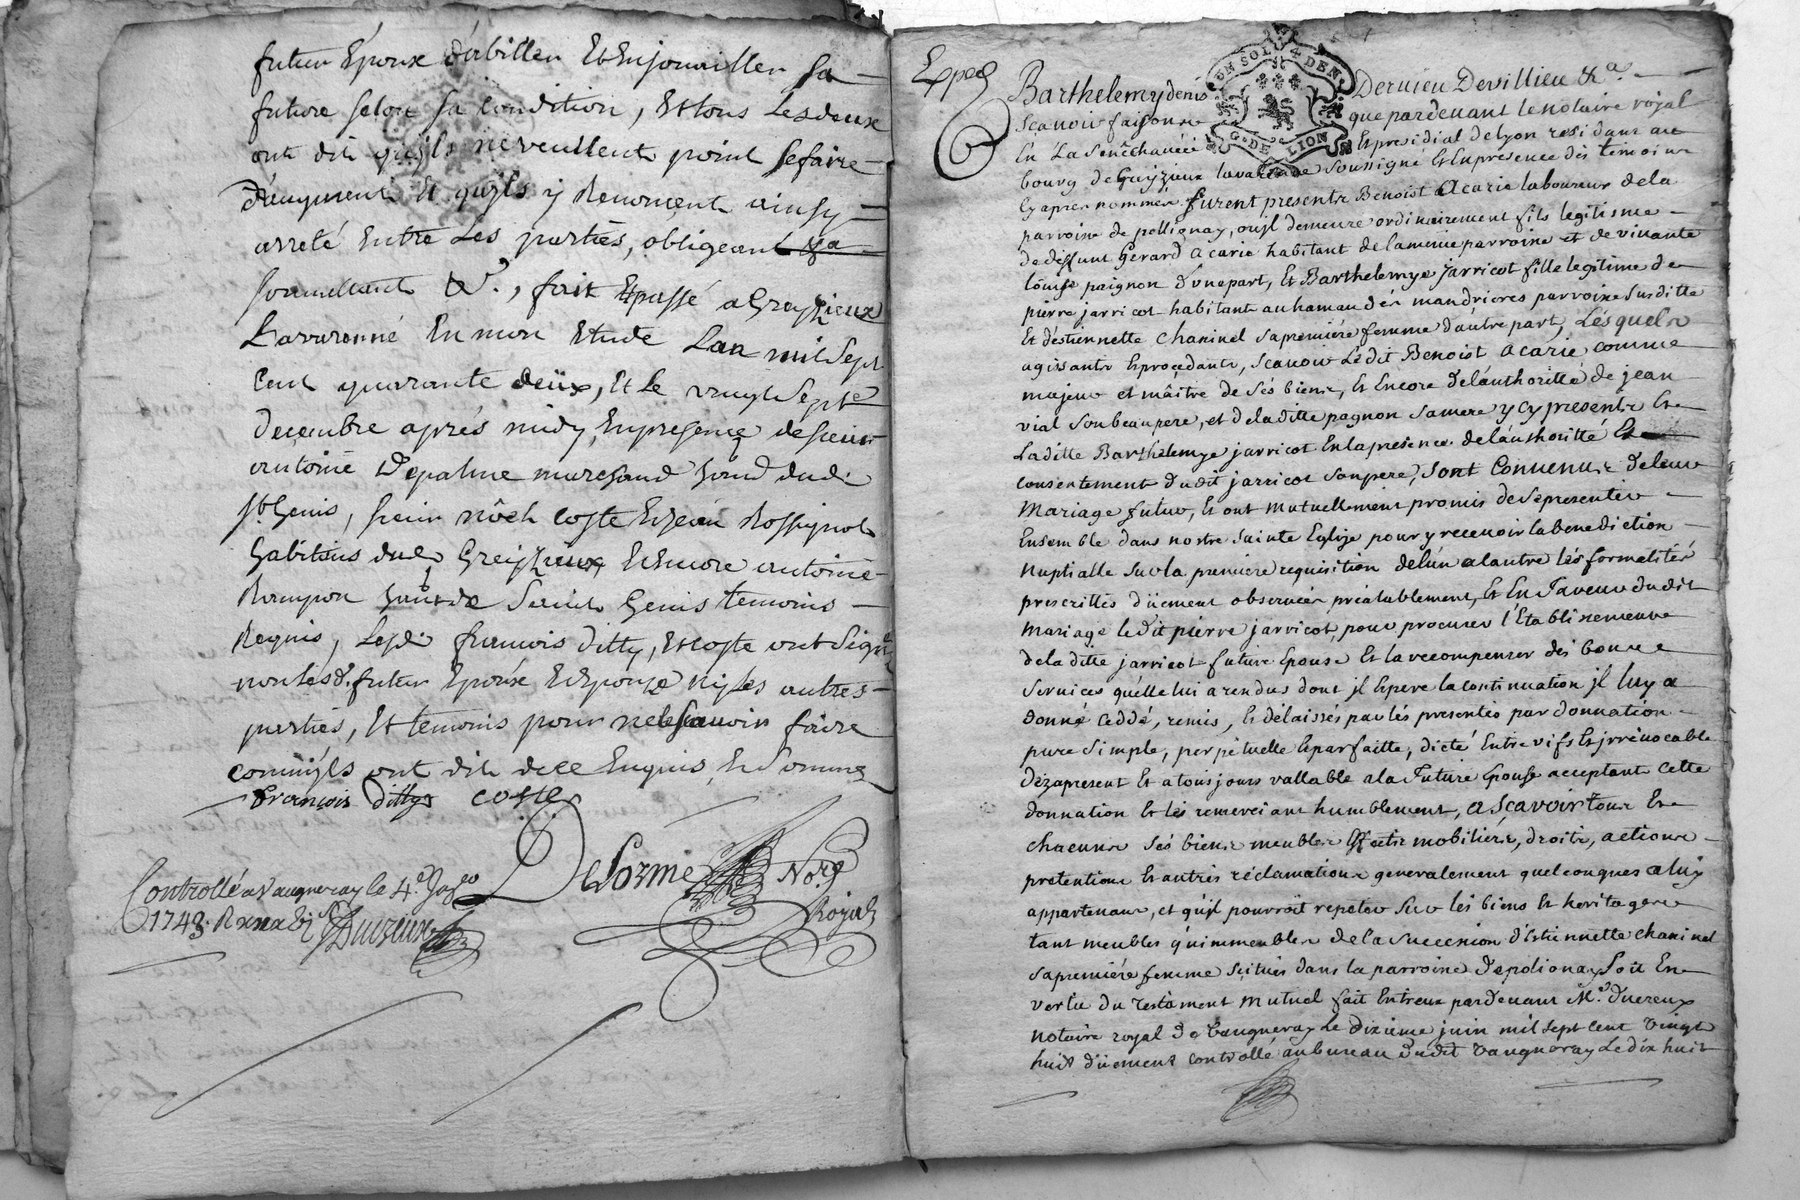 futur Epoux d'abiller Et Enjouailler sa
future selon sa condition, Et tous Les deux
ont dit qu'ils ne veullent point se faire
d'augment Et qu'ils y Renoncent ainsy
arreté Entre Les parties, obligeant
soumettant &a., fait Et passé a Greyzieux
Lavaronné En mon Etude Lan mil Sept
Cent quarante deux, Et Le vingt Septe
Decembre aprés midy, En presence de sieur
antoine Depalme marchand hand dud.
St. Genis, sieur nöel coste Et Jean Rossignol
habitans dud. Greyzieux Et Encore antoine
Rampon de Saint Genis temoins
Requis, Lesd. francois ditty, Et coste ont Signé
non lesd. futur Epoux Et Epouse ny les autres
parties, Et temoins pour ne le scavoir faire
comm'ils ont dit de ce Enquis Et Sommez
francois ditty coste
Delorme No.re
Royal
Controllé a Vaugneray le 4.e
1743.
Duereux
Exped
UN SOL 4 DEN
G. DE LION
Barthelemy denis Dervieu Devillieu &a.
Scavoir faisons que pardevant le notaire royal
En La Senéchaucée Et presidial de lyon residant au
bourg de Greÿzieux lavaronne soussigné Et En presence dés témoins
Cy aprés nommés furent presents Benoist Acarie laboureur de la
parroisse de pollionay, ou jl demeure ordinairement fils legitisme
de deffunt Gerard Acarie habitant de la meme parroisse et de vivante
Loüise paignon d'une part, Et Barthelemye Jarricot fille legitime de
pierre jarricot habitant au hamau dés mandrieres parroisse Susditte
Et d'éstiennette Chaninel sa premiére femme d'autre part, Lésquels
agissants Et procedants, scavoir Lédit Benoist Acarie comme
majeur et mâitre de Sés biens, Et Encore de l'authoritté de jean
vial Son beaupere, et de la ditte pagnon Sa mere y cy presents Et
La ditte Barthelemye jarricot En la presence de l'authoritté Et
consentement dudit jarricot Son pere, Sont Convenus de leur
Mariage futur, Et ont mutuellement promis de Se presenter
Ensemble dans nostre Sainte Eglize pour y recevoir la benediction
Nuptialle Sur la premiére requisition de l'un a l'autre lés formalités
prescrittés düement observées préalablement, Et En faveur dudit
Mariage le dit pierre jarricot, pour procurer l'Établissement
de la ditte jarricot future Epouse Et la recompenser dés bons
Services qu'elle lui a rendus dont jl Espere la continuation jl luy a
donné ceddé, remis, Et délaissés par lés presentes par donnation
pure Simple, perpétuelle Et parfaitte, dicté Entre vifs Et jrrévocable
déz a present Et a tousjours vallable a la Future Epouse acceptant Cette
donnation Et lés remerciant humblement, A Scavoir tous Et
chacuns Sés biens meubles Effects mobiliers, droits, actions
pretentions Et autrés réclamations generalement quelconques a luy
appartenants, et qu'jl pourroit repeter Sur lés biens Et heritages
tant meubles qu'immeubles de la Succession d'éstiennette chaninel
sa premiére femme scitués dans la parroisse de polionay Soit En
vertu du Testament mutuel fait Entreux pardevant M.e duereux
notaire royal de Vaugneray Le dixieme juin mil sept cent vingt
huit düement controllé au bureau dudit Vaugneray Le dix huit